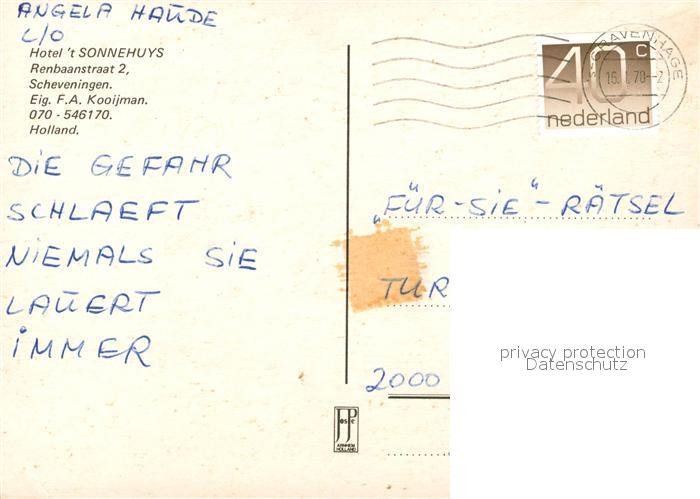 ANGELA HAUDE
C/O
Hotel 't SONNEHUYS
Renbaanstraat 2,
Scheveningen.
Eig. F.A. Kooijman.
070 - 546170.
Holland.
DIE GEFAHR
SCHLAEFT
NIEMALS SIE
LAUERT
IMMER
's-GRAVENHAGE
40 c
nederland
„FÜR-SIE"-RÄTSEL
TUR
2000
privacy protection
Datenschutz
JosPé
ARNHEM
HOLLAND